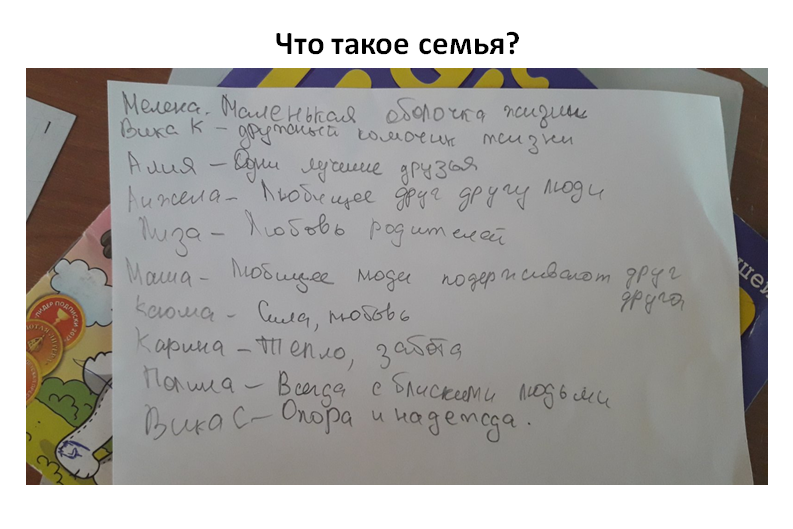 Что такое семья?
Мелена. Маленькая оболочка жизни
Вика К – дружный комочик жизни
Алия – Одни лучшие друзья
Анжела – Любищее друг другу люди
Лиза – Любовь родителей
Маша – Любищее люди подерживают друг
друга
Сила, любовь
Карина – Тепло, забота
Полина – Всегда с блискими людьми
Вика С – Опора и надежда.
ЛИДЕР ПОДПИСКИ